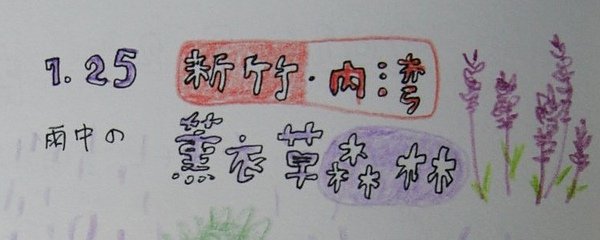 1.25 新竹·內灣
雨中の 薰衣草森林